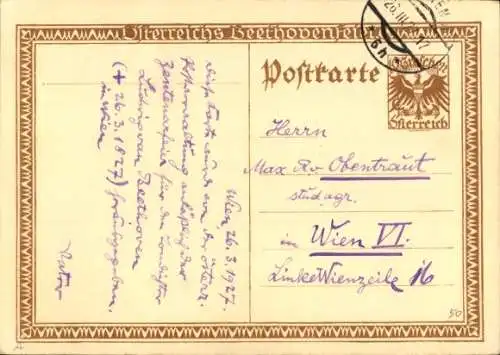 Österreichs Beethovenfeier
Postkarte
WIEN
26.III.
Österreich
Wien, 26. 3. 1927.
Diese Karte wurde von der österr.
Postverwaltung anläßlich der
Zentenarfeier für den Tondichter
Ludwig van Beethoven
(+ 26. 3. 1827) herausgegeben.
in Wien
Vater
Herrn
Max R. v. Obentraut
stud agr.
in Wien VI.
Linke Wienzeile 16
50